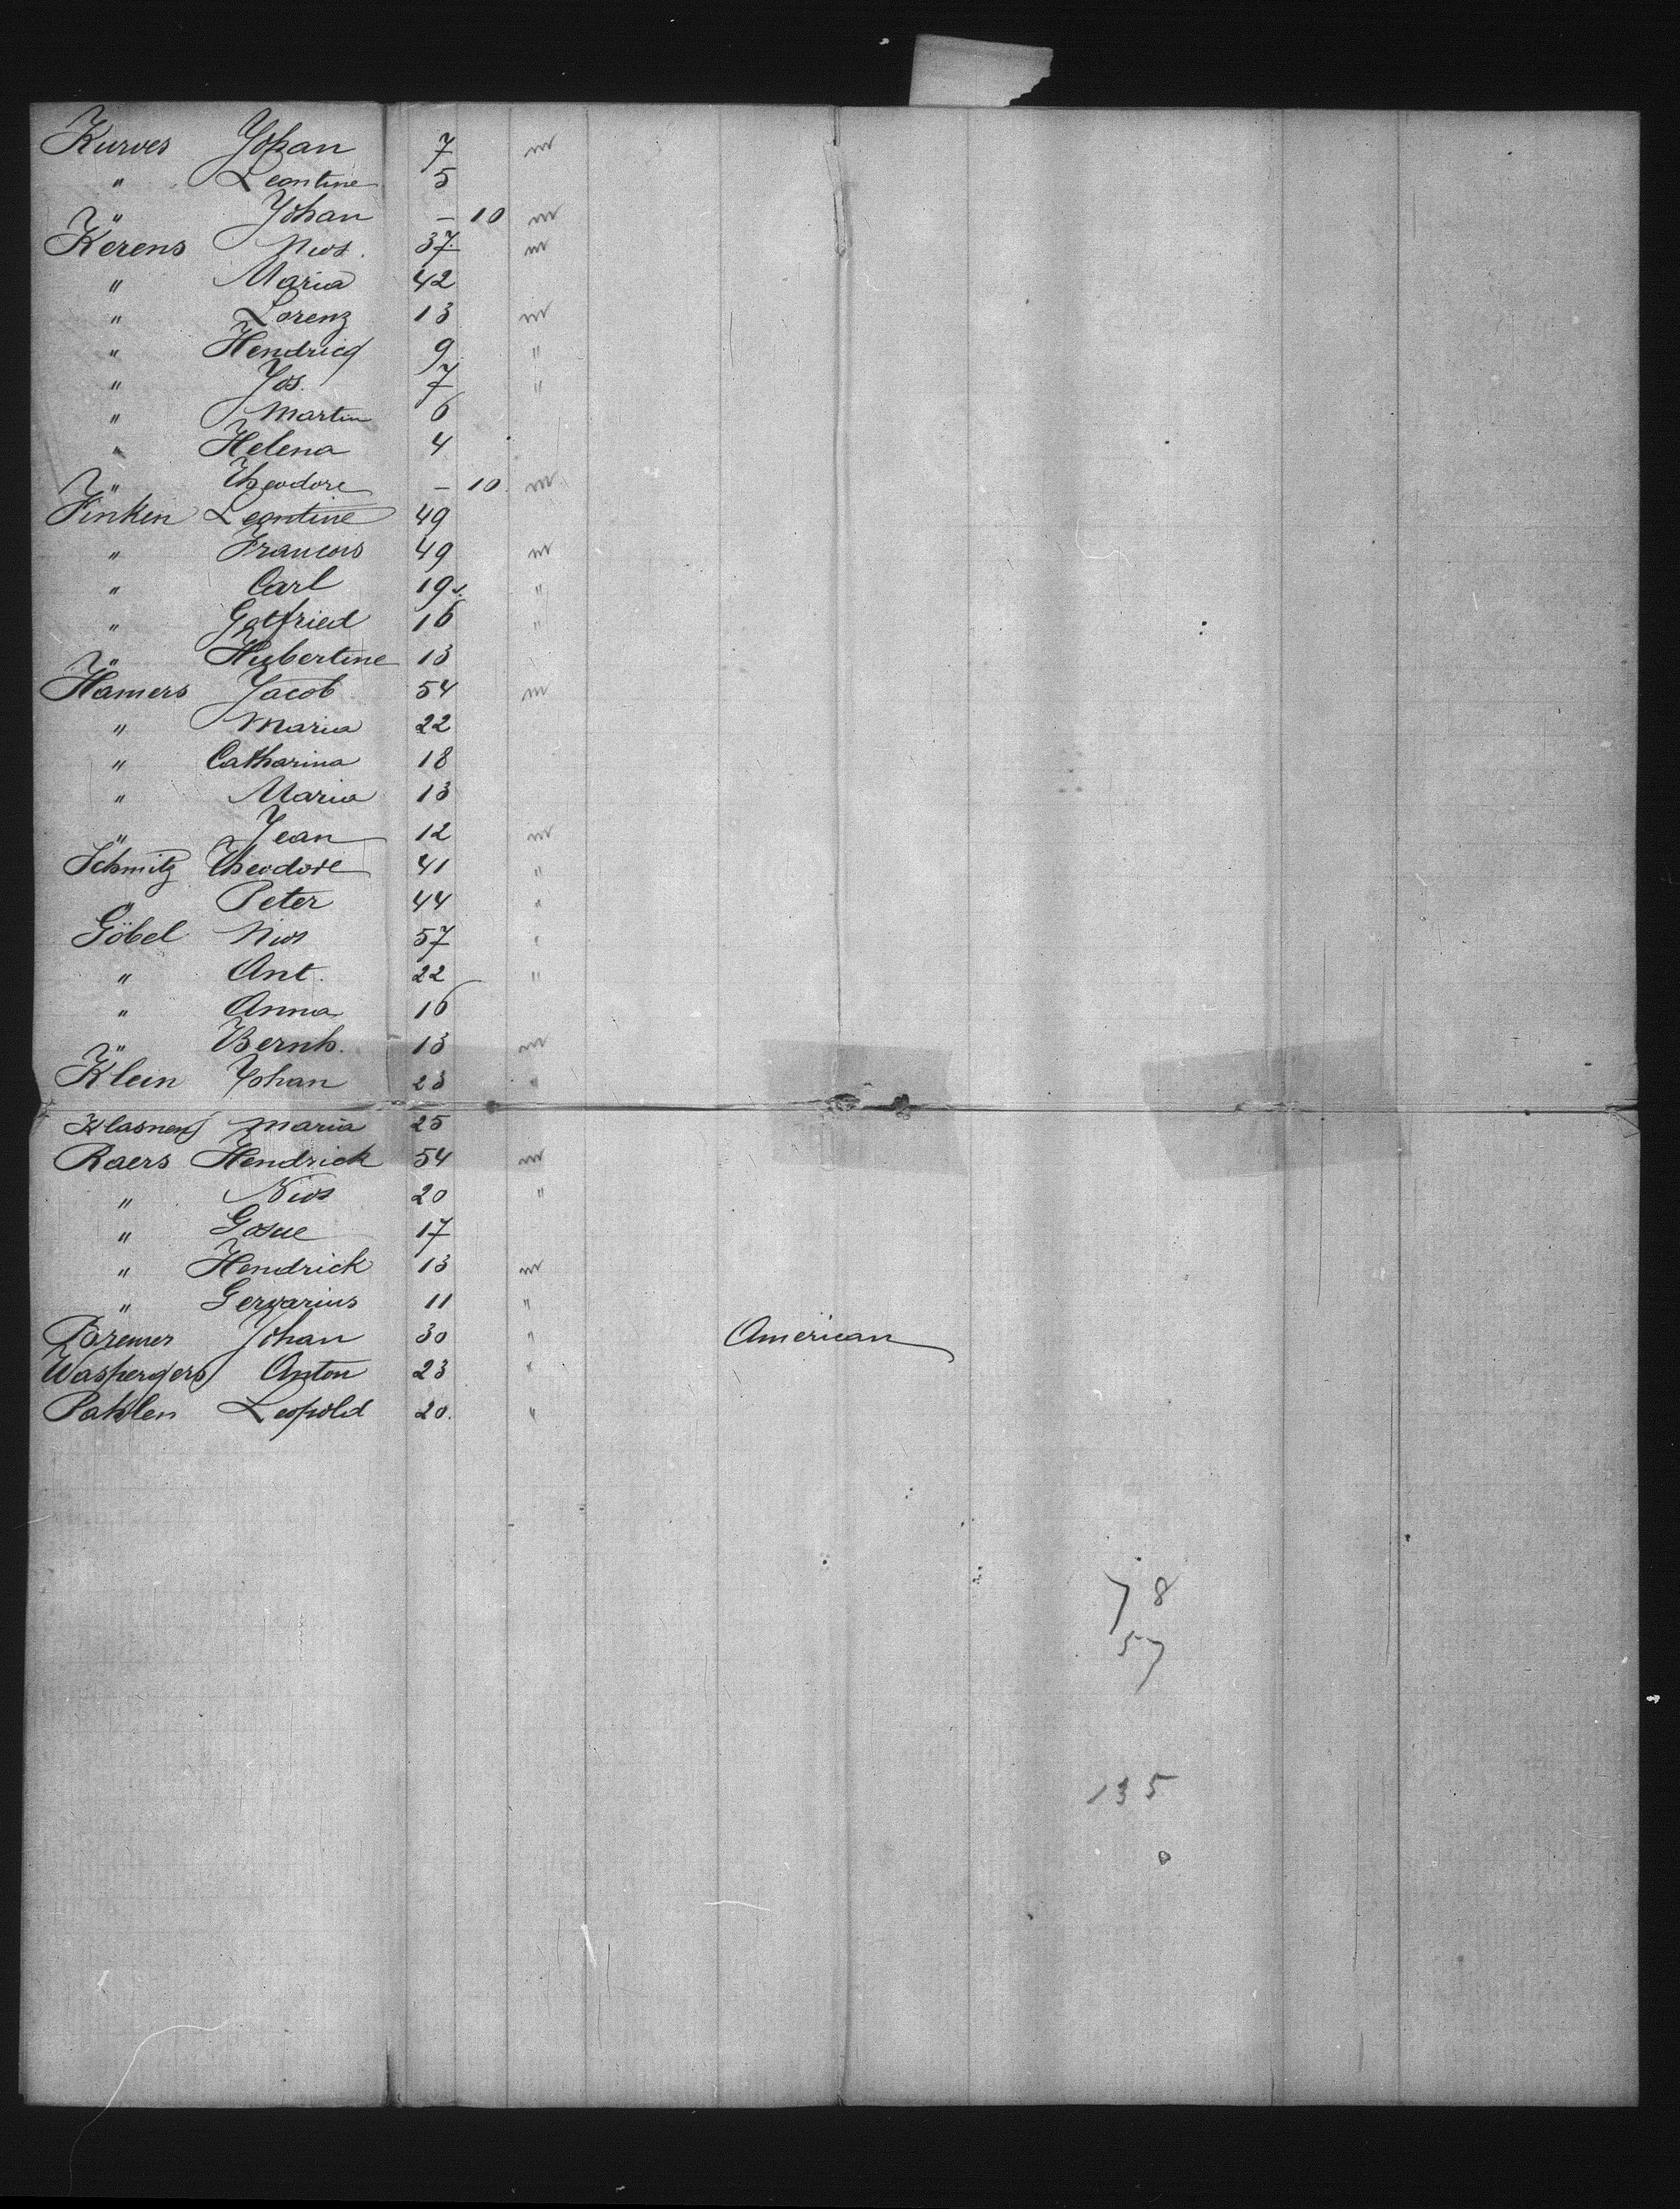 Kurves Johan 7 m
" Leontine 5
" Johan – 10 m
Kerens Nics. 37 m
" Maria 42
" Lorenz 13 m
" Hendricq 9 "
" Jos. 7 "
" Martin 6
" Helena 4
" Theodore – 10 m
Finken Leontine 49
" Francois 49 m
" Carl 19 "
" Gotfried 16 "
" Hubertine 13
Hamers Jacob 54 m
" Maria 22
" Catharina 18
" Maria 13
" Jean 12 m
Schmitz Theodore 41 "
" Peter 44 "
Göbel Nics 57 "
" Ant. 22 "
" Anna 16
" Bernh. 13 m
Klein Johan 23 "
Maria 25
Raers Hendrick 54 m
" Nics 20 "
" 17
" Hendrick 13 m
" Gervarius 11 "
Bremer Johan 30 " American
Anton 23 "
Pahlen Leopold 20. "
78
57
135